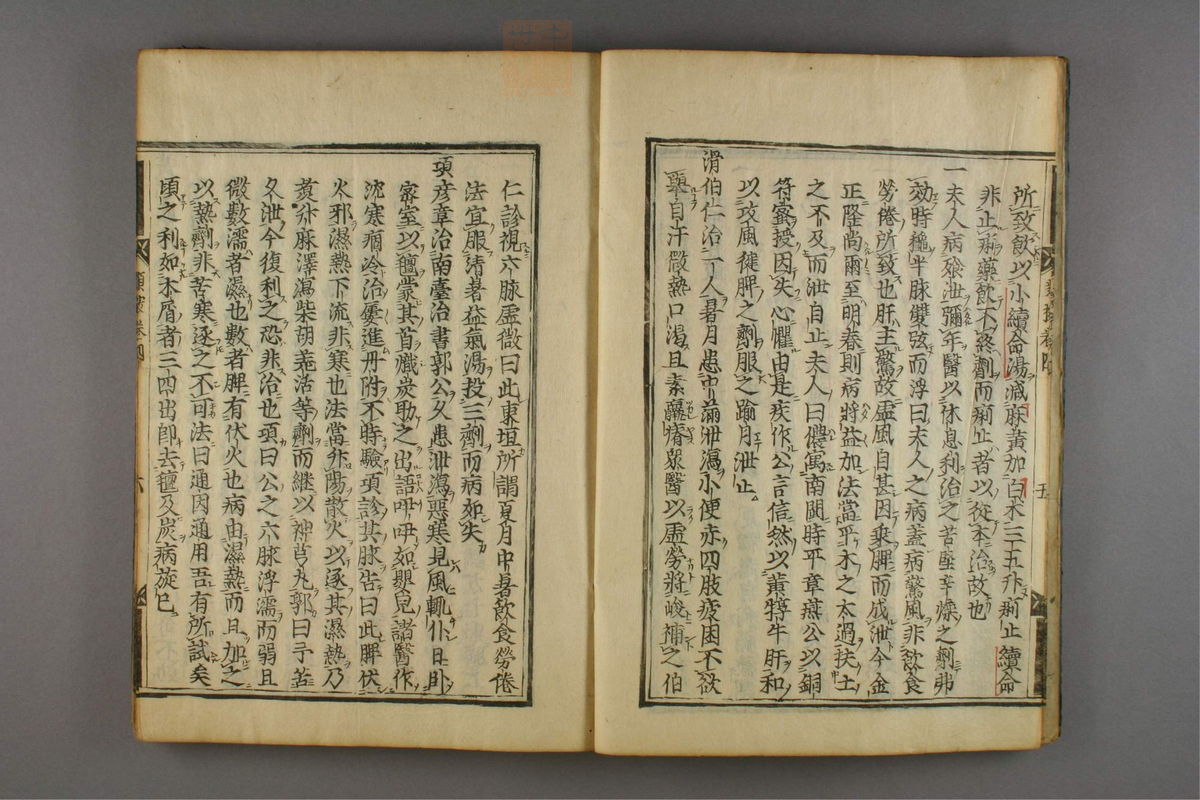 所致飲以小續命湯減麻黄加白朮三五升痢止續命
非止痢藥飲不終劑而痢止者以從本治故也
一夫人病飧泄彌年醫以休息利治之苦堅辛燥之劑弗
效時龝半脉雙弦而浮曰夫人之病蓋病驚風非飲食
勞倦所致也肝主驚故虚風自甚因乗脾而成泄今金
正隆尚爾至明春則病將益加法當平木之太過扶土
之不及而泄自止夫人曰儂寓南閩時平章燕公以銅
符密授因失心懼由是疾作公言信然以黄牸牛肝和
以攻風健脾之劑服之踰月泄止
滑伯仁治一人暑月患中滿泄瀉小便赤四肢疲困不欲
舉自汗微熱口渇且素羸瘠衆醫以虚勞將峻補之伯
五
仁診視六脉虚微曰此東垣所謂夏月中暑飲食勞倦
法宜服清暑益氣湯投三劑而病如失
項彦章治南臺治書郭公久患泄瀉惡寒見風輙仆日卧
密室以氊蒙其首熾炭助之出語呷呷如嬰兒諸醫作
沈寒痼冷治屢進丹附不時驗項診其脉告曰此脾伏
火邪濕熱下流非寒也法當升陽散火以逐其濕熱乃
煑升麻澤瀉柴胡羗活等劑而繼以神芎丸郭曰予苦
久泄今復利之恐非治也項曰公之六脉浮濡而弱且
微數濡者濕也數者脾有伏火也病由濕熱而且加之
以熱劑非苦寒逐之不可法曰通因通用吾有所試矣
頃之利如木屑者三四出即去氊及炭病旋已
六